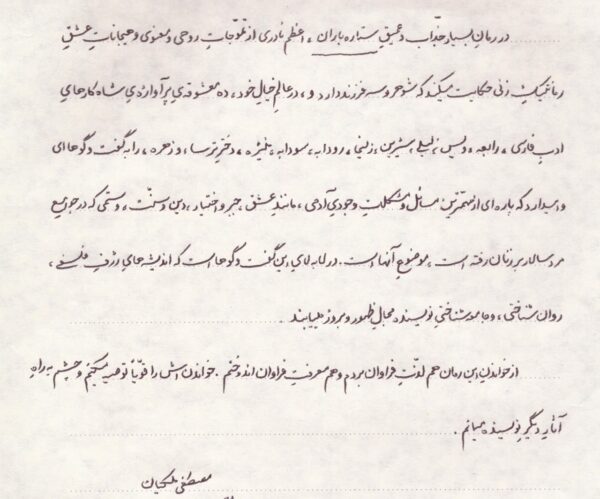 در رمانِ بسیار جذّاب و عمیقِ ستاره باران، اعظم نادری از تموّجاتِ روحی و معنوی و هیجاناتِ عشقِ
رمانتیکِ زنی حکایت میکند که شوهر و سه فرزند دارد و، در عالمِ خیالِ خود، ده معشوقه‌ی پرآوازه‌ی شاهکارهای
ادبِ فارسی، رابعه، ویس، لیلی، شیرین، زلیخا، رودابه، سودابه، منیژه، دخترِ ترسا، و زهره، را به گفت و گوهایی
وامیدارد که پاره‌ای از مهمّترین مسائل و مشکلاتِ وجودیِ آدمی، مانندِ عشق، جبر و اختیار، دین و سنّت، و ستمی که در جوامعِ
مردسالار بر زنان رفته است، موضوعِ آنهاست. در لابه‌لای این گفت و گوهاست که اندیشه‌های ژرفِ فلسفی،
روان‌شناختی، و جامعه‌شناختیِ نویسنده مجالِ ظهور و بروز مییابند.
از خواندنِ این رمان هم لذّتِ فراوان بردم و هم معرفتِ فراوان اندوختم. خواندن‌اش را قویّاً توصیه میکنم و چشم به راهِ
آثارِ دیگرِ نویسنده میمانم.
مصطفی ملکیان